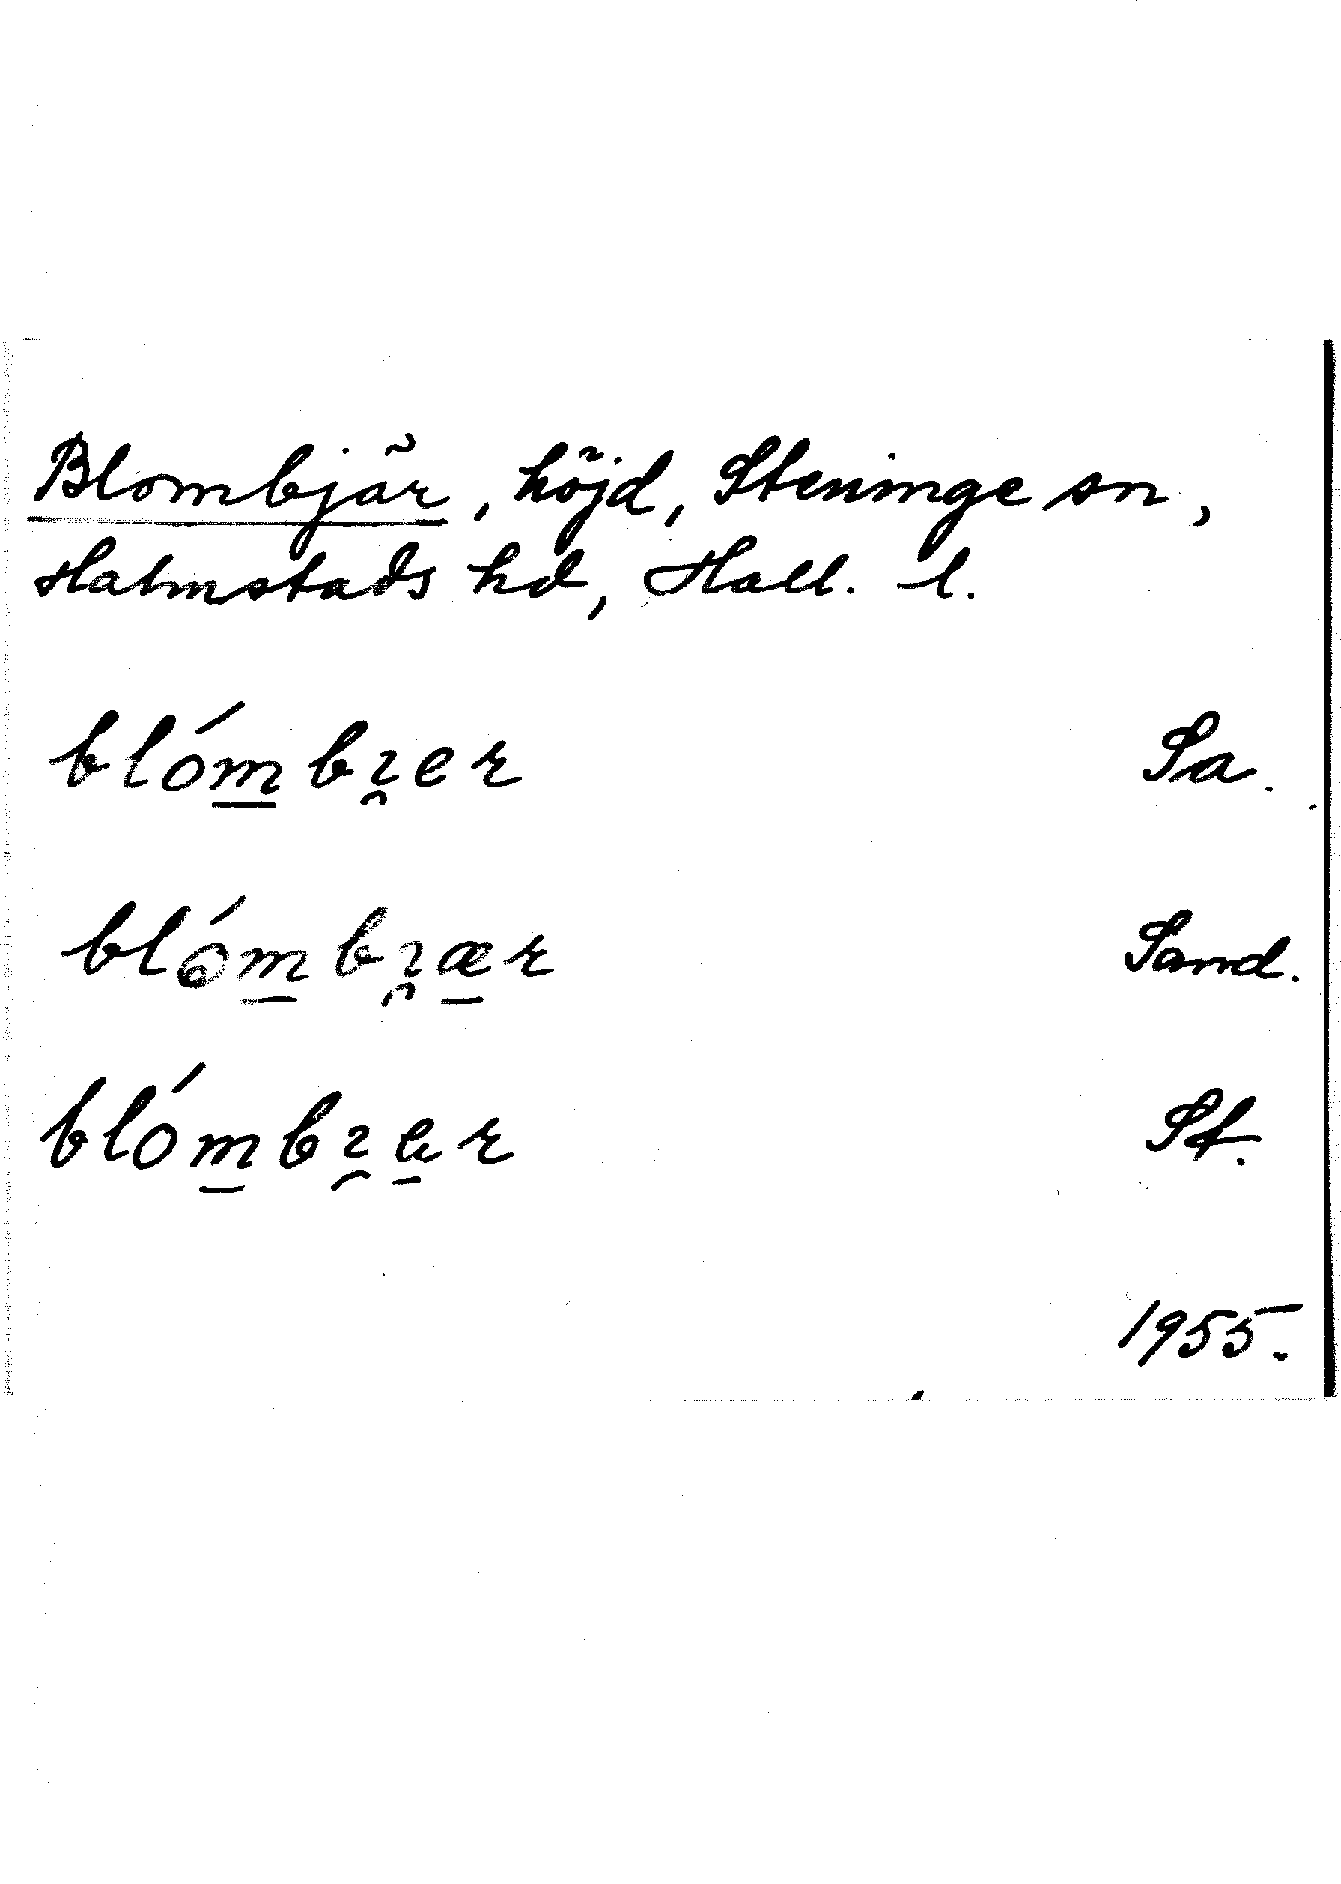 Blombjär, höjd, Steninge sn,
Halmstads hd, Hall. l.
blómbɿ̯er Sa.
blómbɿ̯ær Sand.
blómbɿ̯ar St.
1955.